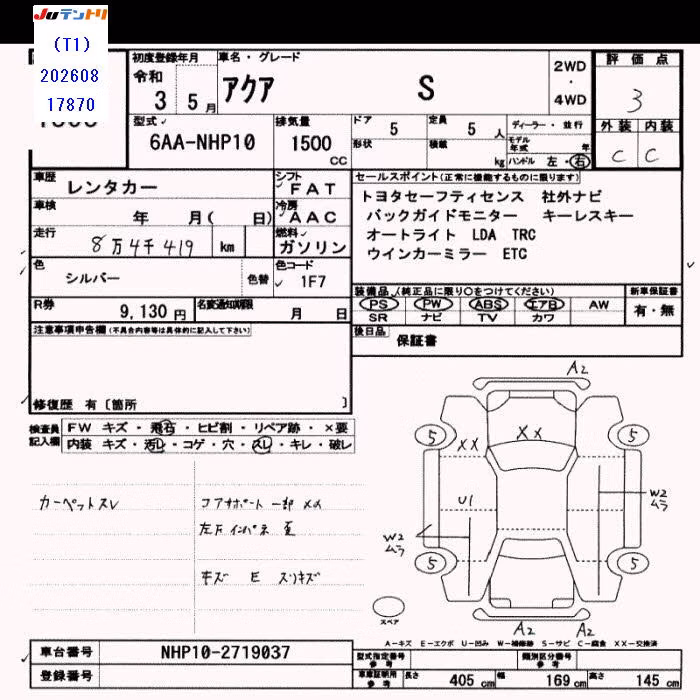 Juテントリ
(T1)
202608
17870
初度登録年月
令和
3年 5月
車名・グレード
アクア S
2WD
・
4WD
評価点
3
外装 内装
C C
型式
6AA-NHP10
排気量
1500
CC
ドア 5
定員 5 人
形状
積載 kg
ディーラー・並行
モデル年式 年
ハンドル 左・右
車歴
レンタカー
シフト
FAT
車検
年 月( 日)
冷房
AAC
走行
8万4千419 km
燃料
ガソリン
色
シルバー
色替
色コード
1F7
セールスポイント(正常に機能するものに限ります)
トヨタセーフティセンス 社外ナビ
バックガイドモニター キーレスキー
オートライト LDA TRC
ウインカーミラー ETC
装備品(純正品に限り○をつけてください)
PS PW ABS エアB AW
SR ナビ TV カワ
新車保証書
有・無
R券
9,130 円
名変通知期限
月 日
後日品
保証書
注意事項申告欄(不具合内容等は具体的に記入して下さい)
修復歴 有〔箇所 〕
検査員
記入欄
FW キズ・飛石・ヒビ割・リペア跡・×要
内装 キズ・汚レ・コゲ・穴・スレ・キレ・破レ
カーペットスレ
コアサポート 一部 XX
キズ E スリキズ
A2
5 5
XX XX
U1
W2
ムラ
W2
ムラ
5 5
A2 A2
スペア
A-キズ E-エクボ U-凹み W-補修跡 S-サビ C-腐食 XX-交換済
車台番号
NHP10-2719037
登録番号
型式指定番号
参考
類別区分番号
参考
車庫証明用
参考
長さ 405 cm
幅 169 cm
高さ 145 cm